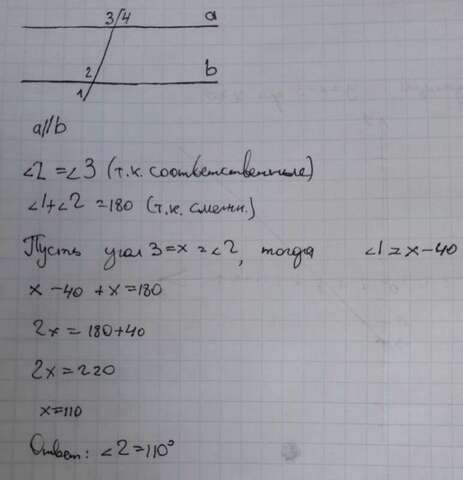 3/4 a
2 b
1
a//b
∠2 = ∠3 (т.к. соответственные)
∠1+∠2 = 180 (т.к. смежн.)
Пусть угол 3 = x = ∠2, тогда ∠1 = x-40
x - 40 + x = 180
2x = 180+40
2x = 220
x=110
Ответ: ∠2 = 110°